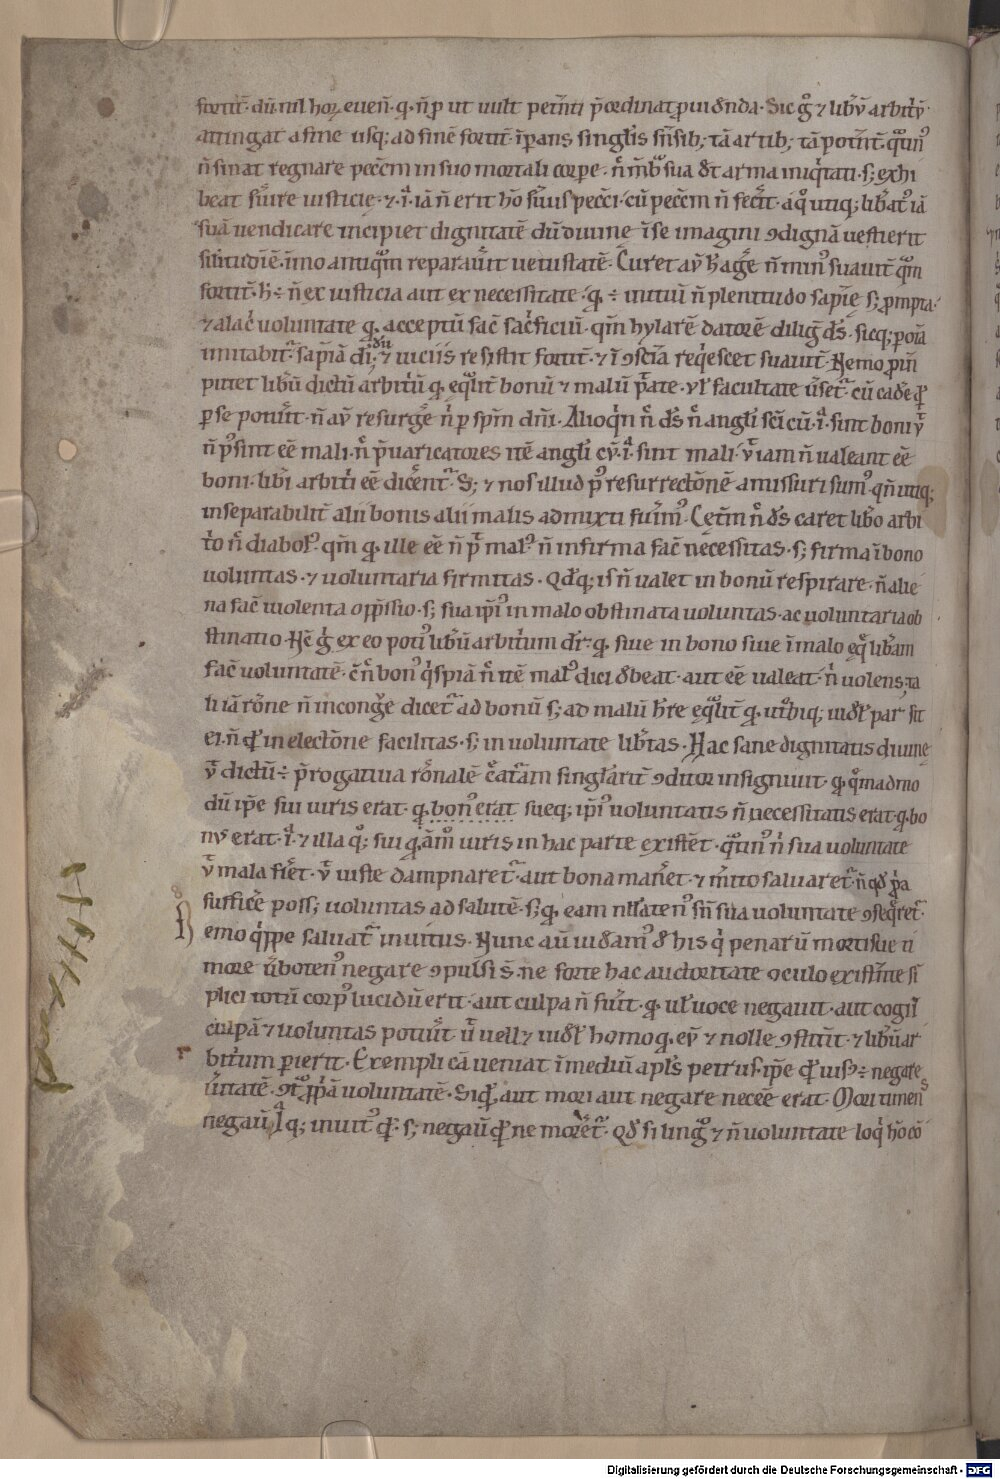 fortit̄· dū nil hoꝝ eveniꞇ̄· q̨· ñ ꝓ ut vult petn̄ti p̄ordinat ꝓuidn̄da· Sic gͦ ⁊ libv̄ arbitͥv̄·
attingat a fine usq; ad finē fortit̄· īꝑans singlis sn̄sib; tā artib; tā potn̄t̄· qͣtinꝰ
ñ sinat regnare peccm̄ in suo mortali corpe· nͨ mb̄ra sua det arma iniqͥtati· s; exhi
beat suͥre iusticię· ⁊·iͣ· iā ñ erit hō suͥus peccͥ· cū peccm̄ ñ fecͥt· a qͦ utiq; libatͣ iā
suā uendicare incipiet dignitatē dū diuinę ī se imagini ꝯdignā uestierit
silitudīē· īmo antiqͣm reparauͥit uetustatē· Curet av̄ h̄ agͤe ñ minꝰ suauit̄ qͣm
fortit̄· h̄ ÷ ñ ex iusticia aut ex necessitate· q̨ ÷ initiū ñ plenitudo sapīę s; ꝓmpta·
⁊ alacͥ voluntate q̨ acceptū fac̄ sacͥficiū· qm̄ hylarē datorē diliḡ ds̄· sicq; poīa
imitabit̄· sapīā dī· dū ⁊ uiciis resistit fortit̄· ⁊ ī ꝯscīa reqͥescet suauit̄· Nemo ꝓin̄
putet libū dictū arbitͥū q̨ eqͣlit̄ bonū ⁊ malū p̄tate· vl̄ facultate ūsetͣ· cū cadͤe qͥd
ꝑ se potuͥit· ñ av̄ resurgͤe nͥ ꝑ sp̄m dn̄i· Alioqͥn nͨ ds̄ nͨ anglͥ scī cū·iͣ·sint boni vͭ
ñ pͦsint eē mali· nͨ p̄uaricatores itē anglͥ cv̄·iͣ·sint mali· vͭ iam ñ ualeant eē
boni· libͥi arbitͥi eē dicēntͣ· S; ⁊ nos illud pꝰ resurrectōnē amissuri sumꝰ qn̄ utiq;
inseparabilit̄ alii bonis alii malis admixti fuͥimꝰ· Cet̄m nͨ ds̄ caret libͦo arbi
tͥo nͨ diabolꝰ· qm̄ q̨ ille eē ñ p̄ malꝰ ñ infirma fac̄ necessitas· s; firma ī bono
uoluntas· ⁊ uoluntaria firmitas· Qdq; is ñ ualet in bonū respirare· ñ alie
na fac̄ uiolenta opp̄ssio· s; sua ip̄iꝰ in malo obstinata uoluntas· ac uoluntaria ob
stinatio· Nc̄ gͥ ex eo potiꝰ libūarbitum dr̄· q̨ siue in bono siue ī malo eqͣ libam
fac̄ voluntatē· cͥ nͨ bonꝰ qͥspiā nͨ itē malꝰ dici dbeat· aut eē ualeat nͥ uolens· ta
li iā rōne ñ incongͤue dicetͣ ad bonū s; ad malū h̄re eqͣlit̄ q̨ utͥbiq; uidꝉ par sit
ei· ñ qͥd in electōne facilitas· s; in uoluntate libtas· Hac sane dignitatis diuinę
vͭ dictū ÷ p̄rogatiua rōnalē cͤatͣam singlarit̄ ꝯditor insignuit· q̨ qͣmadmo
dū ip̄e sui iuris erat· q̨ bonꝰ erat sueq; ip̄iꝰ voluntatis ñ necessitatis erat· q̨ bo
nvs erat·iͣ· ⁊ illa qͦ; sui q̨ām̊ iuris in hac parte existēt· qͣtinꝰ nͥ sua uoluntate
vͭ mala fiet· vͭ iuste dampnaretͣ· aut bona manet· ⁊ mͥto saluaretͣ· ñ qd ꝓp̄a
sufficͤe poss; uoluntas ad salutē· s; q̨ eam nllatenꝰ sn̄ sua voluntate ꝯseqͤretͣ·
Nemo qͥppe saluatͣ inuitus· Nunc aū uidamꝰ d his qͥ penarū mortisue ti
more ūbotenꝰ negare ꝯpulsi s̄· ne forte hac auctoritate ꝯculo existn̄te sī
plici totū corpꝰ lucidū erit· aut culpa ñ fuͥit· q̨ vl̄ uoce negauit· aut cogil
culpā ⁊ uoluntas potuͥit· v̄ vell; ⁊ uidꝉ homo q̨ ev̄ ⁊ nolle ꝯstitͥit· ⁊ libūar
bitͥum ꝑierit· Exempli cā ueniat ī mediū apls̄ petrus· ip̄e qͥd uisꝰ ÷ negare
ūitatē· ꝯtͣ ꝓp̄ā uoluntatē· Siqͥd aut mori aut negare neceē erat· Mori timenˢ
negaū· Iͣq; inuitꝰ qͥd· s; negaū qͥd ne moretͣ· Qd si lingͣ ⁊ ñ uoluntate loqͥ hō cō